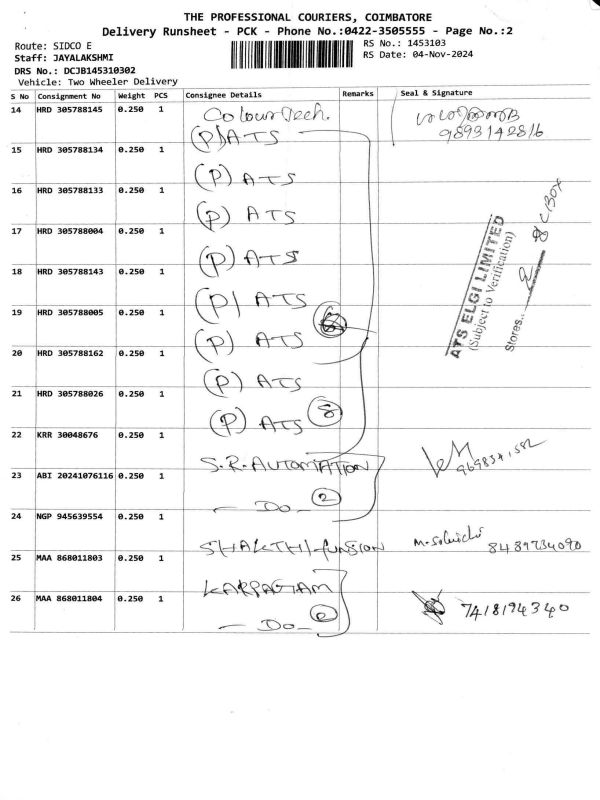 THE PROFESSIONAL COURIERS, COIMBATORE
Delivery Runsheet - PCK - Phone No.:0422-3505555 - Page No.:2
Route: SIDCO E
RS No.: 1453103
Staff: JAYALAKSHMI
RS Date: 04-Nov-2024
DRS No.: DCJB145310302
Vehicle: Two Wheeler Delivery
S No Consignment No Weight PCS Consignee Details Remarks Seal & Signature
14 HRD 305788145 0.250 1 Colour Tech.
9893142816
(P) ATS
15 HRD 305788134 0.250 1
(P) ATS
16 HRD 305788133 0.250 1
(P) ATS
17 HRD 305788004 0.250 1
(P) ATS
18 HRD 305788143 0.250 1
(P) ATS
19 HRD 305788005 0.250 1
(P) ATS
20 HRD 305788162 0.250 1
(P) ATS
21 HRD 305788026 0.250 1
(P) ATS 8
ATS ELGI LIMITED
(Subject to Verification)
Stores..
22 KRR 30048676 0.250 1
S.R. AUTOMATION
23 ABI 20241076116 0.250 1
- Do - 2
24 NGP 945639554 0.250 1
SHAKTHI funsion
8489734090
25 MAA 868011803 0.250 1
KARPAGAM
26 MAA 868011804 0.250 1
7418194340
- Do -